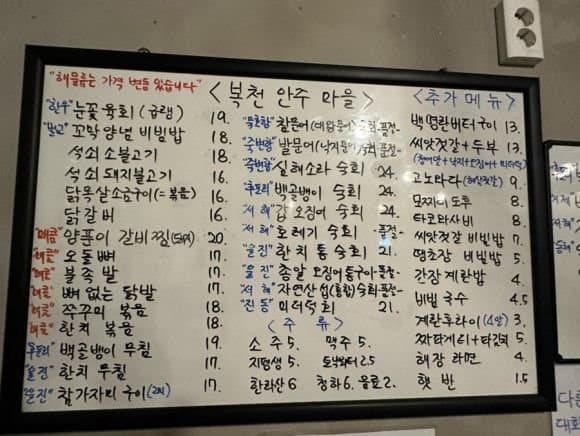 "해물류는 가격 변동 있습니다"
<복천 안주 마을>
"한우" 눈꽃 육회 (급랭) 19.
"벌교" 꼬막 양념 비빔밥 18.
석쇠 소불고기 18.
석쇠 돼지불고기 16.
닭목살 소금구이 (= 볶음) 16.
닭갈비 16.
"매콤" 양푼이 갈비찜 (돼지) 20.
"매콤" 오돌뼈 17.
"매콤" 불족발 17.
"매콤" 뼈 없는 닭발 17.
"매콤" 쭈꾸미 볶음 18.
"매콤" 한치 볶음 18.
"후포리" 백골뱅이 무침 19.
"울진" 한치 무침 17.
"울진" 참가자미 구이 (2미) 17.
"묵호항" 참문어 (대왕문어) 숙회 -품절-
"주변항" 발문어 (낙지문어) 숙회 -품절-
"주변항" 실해소라 숙회 24.
"후포리" 백골뱅이 숙회 24.
"서해" 갑오징어 숙회 24.
"서해" 호래기 숙회 -품절-
"울진" 한치 통숙회 21.
"울진" 총알 오징어 통구이 -품절-
"서해" 자연산 섭(홍합) 숙회 -품절-
"진동" 미더덕 회 21.
<주 류>
소주 5. 맥주 5.
지평생 5. 토닉워터 2.5
한라산 6 청하 6. 음료 2.
<추가 메뉴>
백명란버터구이 13.
씨앗젓갈 + 두부 13.
(청어알 + 낙지 + 오징어 + 미더덕)
고노와다 (해삼젓갈) 9.
모찌리 도후 8.
타코와사비 8.
씨앗젓갈 비빔밥 7.
땡초장 비빔밥 5.
간장 계란밥 4.
비빔 국수 4.5
계란후라이 (2알) 3.
짜파게티 + 타김치 5.
해장 라면 4.
햇반 1.5
다른
대화